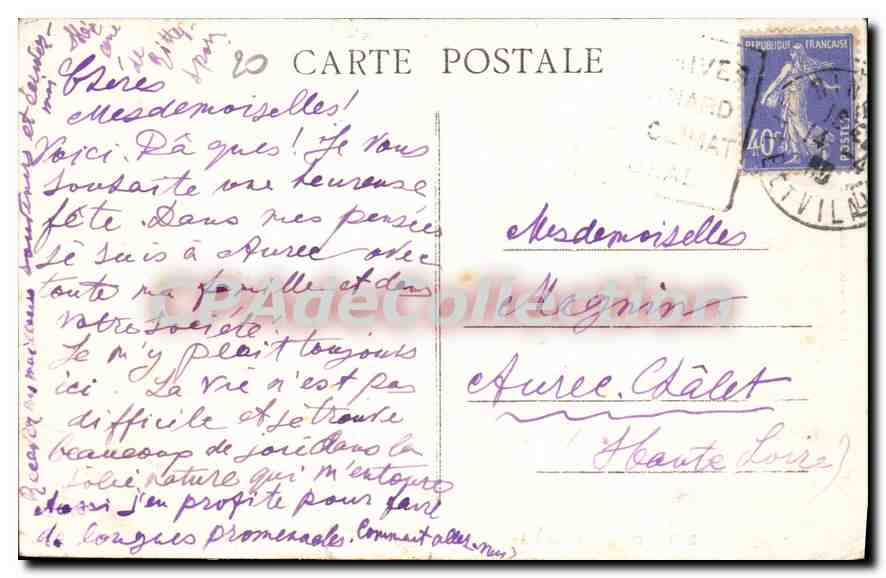 CARTE POSTALE
20
Chéres
Mesdemoiselles!
Voici Pâques! Je vous
souhaite une heureuse
fête. Dans mes pensées
je suis à Aurec avec
toute ma famille et dans
votre société.
Je m'y plait toujours
ici. La vie n'est pas
difficile et je trouve
beaucoup de joie dans la
jolie nature qui m'entoure
Aussi j'en profite pour faire
de longues promenades. Comment allez-vous?
Recevez meilleurs souvenirs et
REPUBLIQUE FRANÇAISE
40c
POSTES
HIVER
CLIMAT
Mesdemoiselles
Magnin
Aurec. Châlet
(Haute Loire)
CPADeCollection